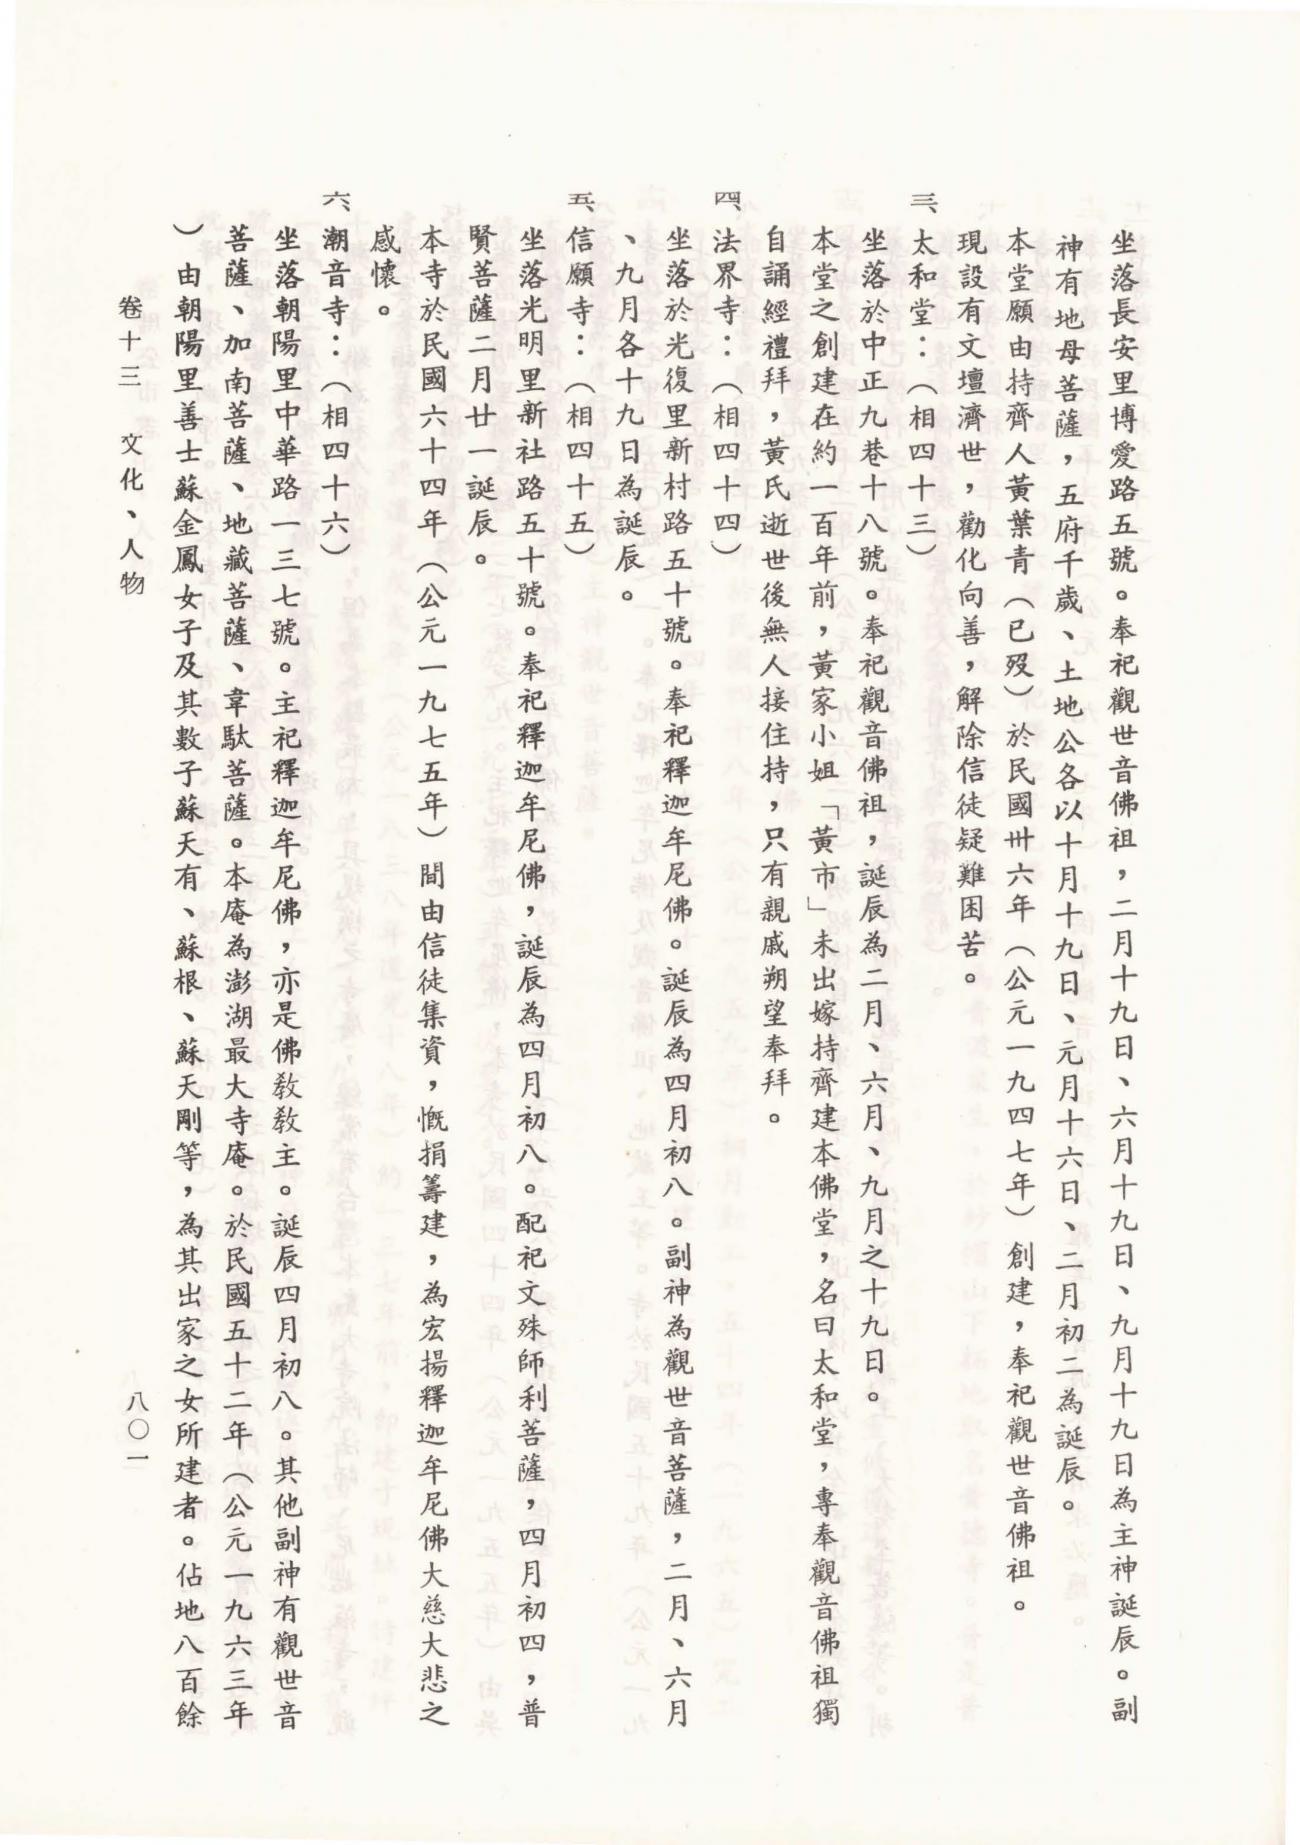 坐落長安里博愛路五號。奉祀觀世音佛祖，二月十九日、六月十九日、九月十九日為主神誕辰。副
神有地母菩薩，五府千歲、土地公各以十月十九日、元月十六日、二月初二為誕辰。
本堂願由持齊人黃葉青（已歿）於民國卅六年（公元一九四七年）創建，奉祀觀世音佛祖。
現設有文壇濟世，勸化向善，解除信徒疑難困苦。
三、太和堂：（相四十三）
坐落於中正九巷十八號。奉祀觀音佛祖，誕辰為二月、六月、九月之十九日。
本堂之創建在約一百年前，黃家小姐「黃市」未出嫁持齊建本佛堂，名曰太和堂，專奉觀音佛祖獨
自誦經禮拜，黃氏逝世後無人接住持，只有親戚朔望奉拜。
四、法界寺：（相四十四）
坐落於光復里新村路五十號。奉祀釋迦牟尼佛。誕辰為四月初八。副神為觀世音菩薩，二月、六月
、九月各十九日為誕辰。
五、信願寺：（相四十五）
坐落光明里新社路五十號。奉祀釋迦牟尼佛，誕辰為四月初八。配祀文殊師利菩薩，四月初四，普
賢菩薩二月廿一誕辰。
本寺於民國六十四年（公元一九七五年）間由信徒集資，慨捐籌建，為宏揚釋迦牟尼佛大慈大悲之
感懷。
六、潮音寺：（相四十六）
坐落朝陽里中華路一三七號。主祀釋迦牟尼佛，亦是佛教教主。誕辰四月初八。其他副神有觀世音
菩薩、加南菩薩、地藏菩薩、韋馱菩薩。本庵為澎湖最大寺庵。於民國五十二年（公元一九六三年
）由朝陽里善士蘇金鳳女子及其數子蘇天有、蘇根、蘇天剛等，為其出家之女所建者。佔地八百餘
卷十三　文化、人物
八〇一